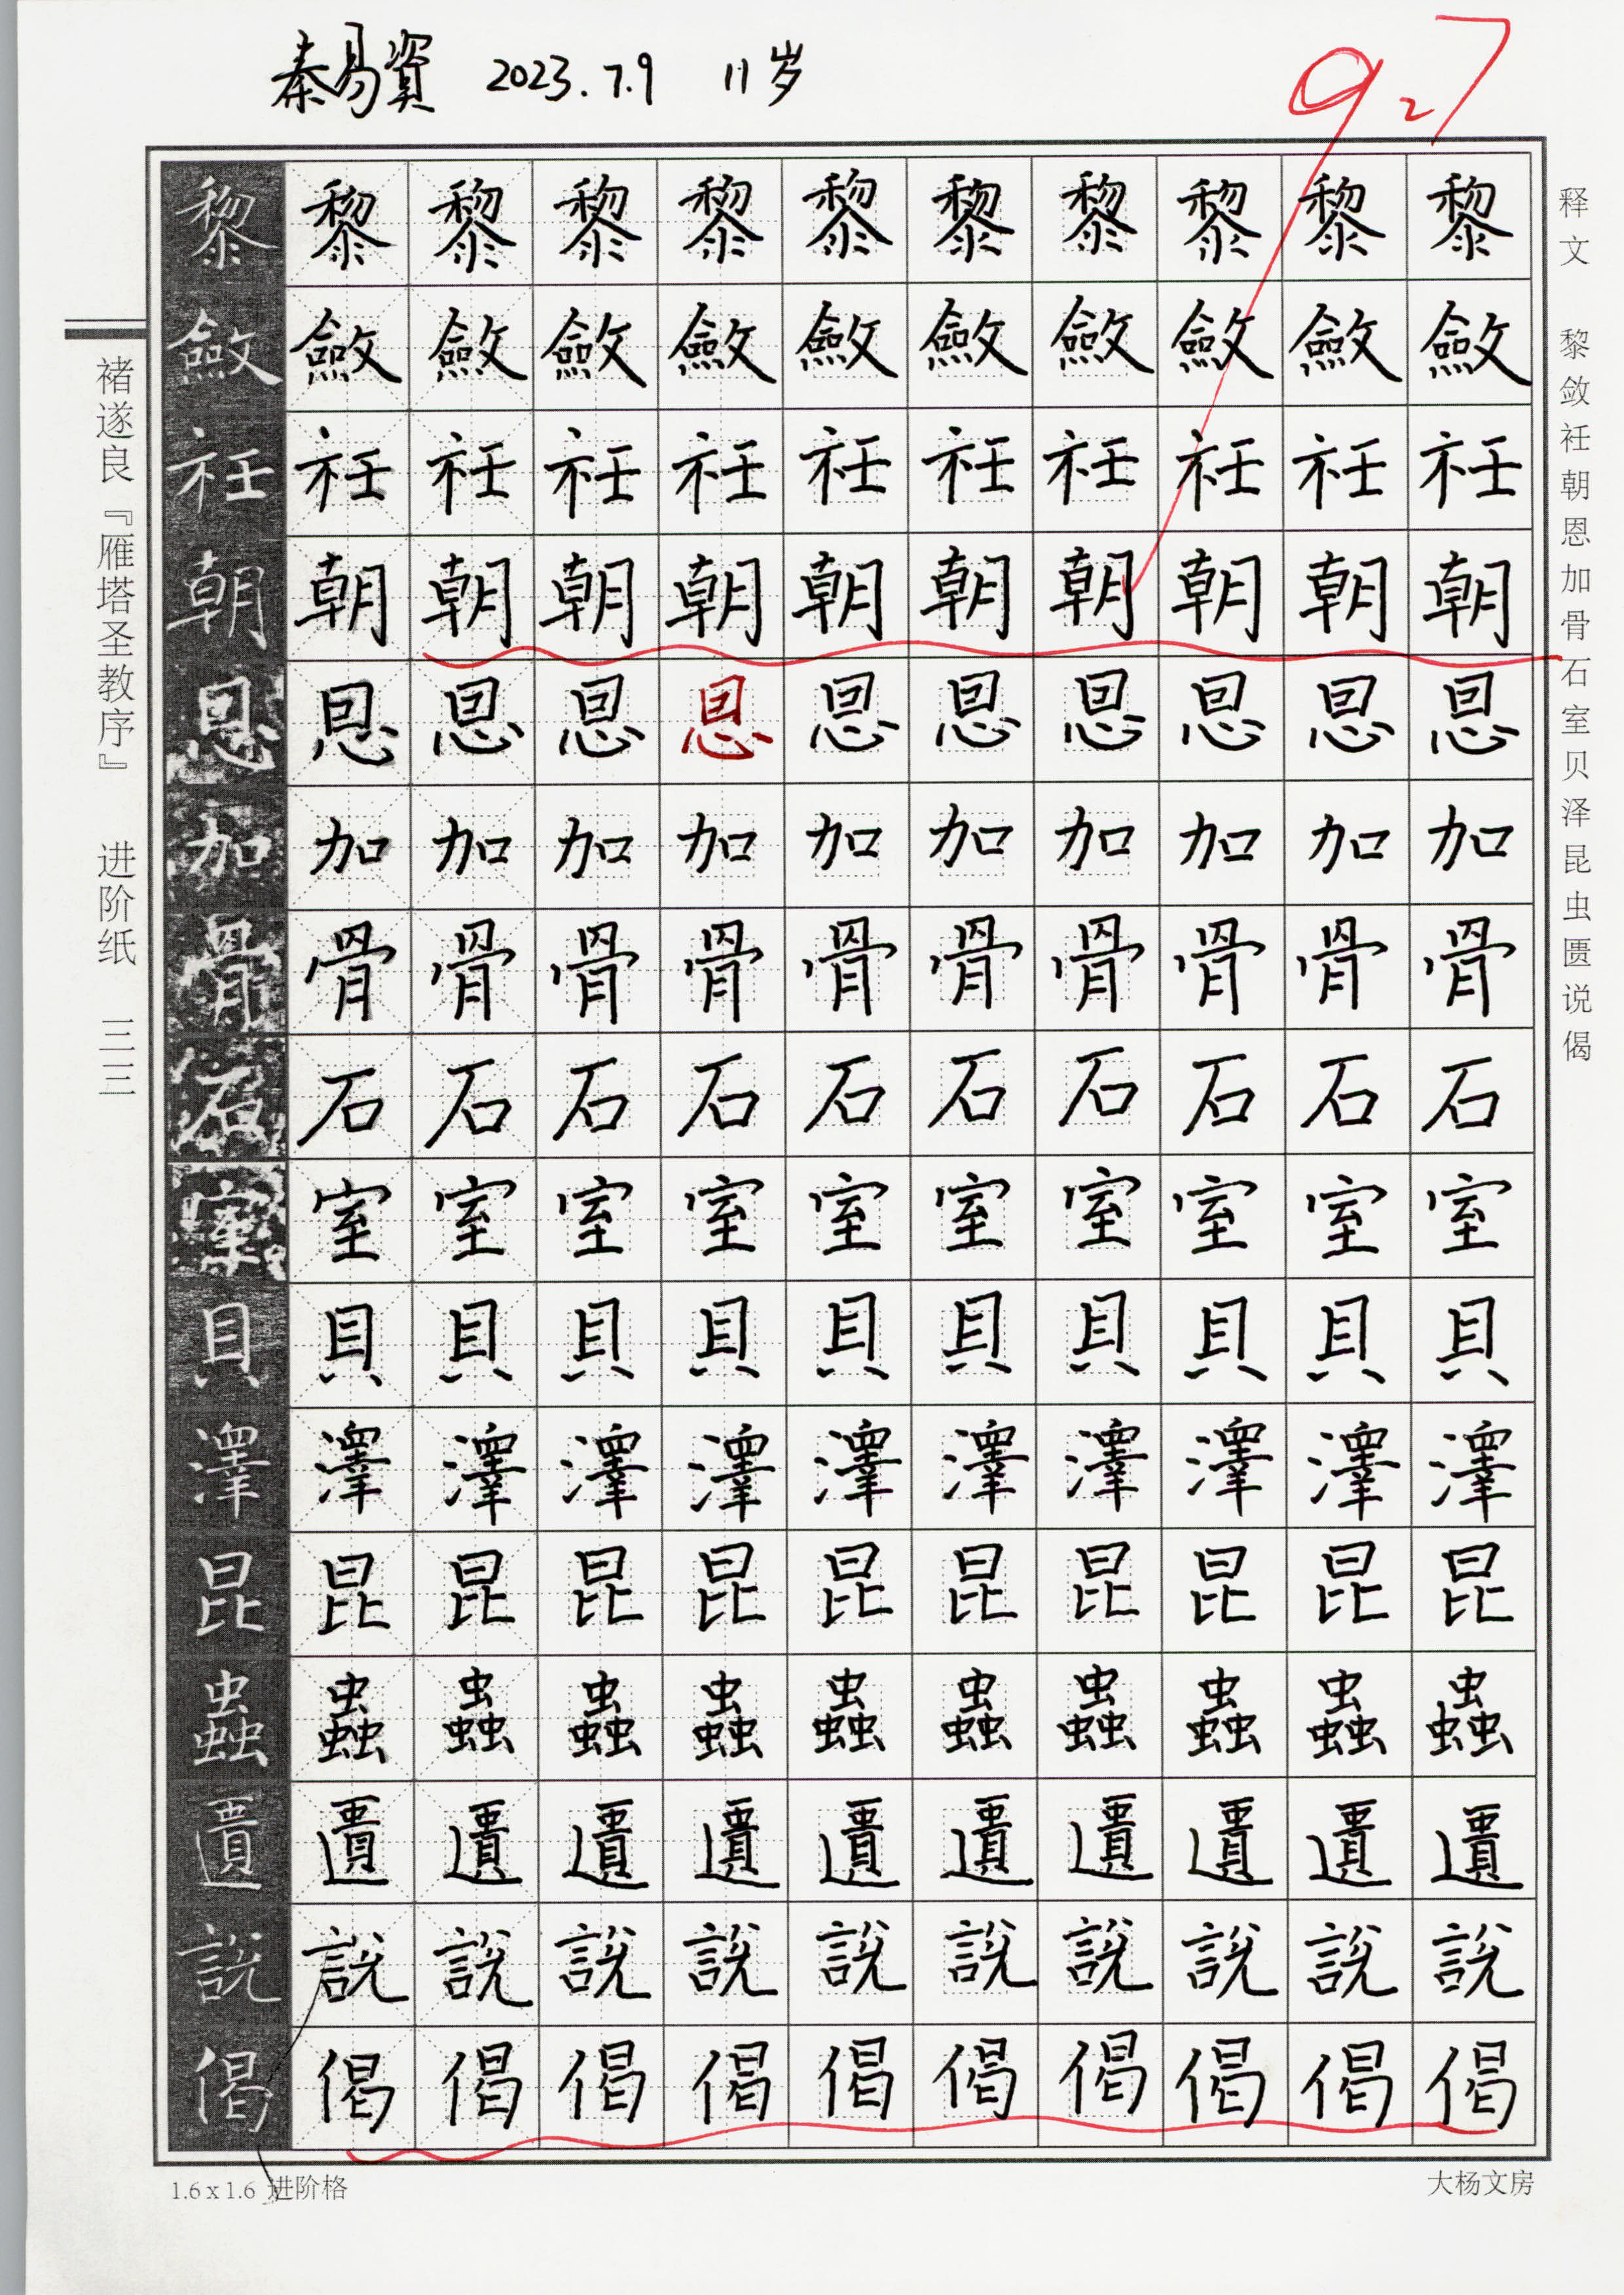 秦易資 2023.7.9 11岁
927
黎黎黎黎黎黎黎黎黎黎黎
斂斂斂斂斂斂斂斂斂斂斂
衽衽衽衽衽衽衽衽衽衽衽
朝朝朝朝朝朝朝朝朝朝朝
恩恩恩恩恩恩恩恩恩恩恩
加加加加加加加加加加加
骨骨骨骨骨骨骨骨骨骨骨
石石石石石石石石石石石
室室室室室室室室室室室
貝貝貝貝貝貝貝貝貝貝貝
澤澤澤澤澤澤澤澤澤澤澤
昆昆昆昆昆昆昆昆昆昆昆
蟲蟲蟲蟲蟲蟲蟲蟲蟲蟲蟲
遺遺遺遺遺遺遺遺遺遺遺
説説説説説説説説説説説
偈偈偈偈偈偈偈偈偈偈偈
释文 黎敛衽朝恩加骨石室贝泽昆虫匮说偈
褚遂良『雁塔圣教序』 进阶纸 三三
1.6x1.6 进阶格
大杨文房